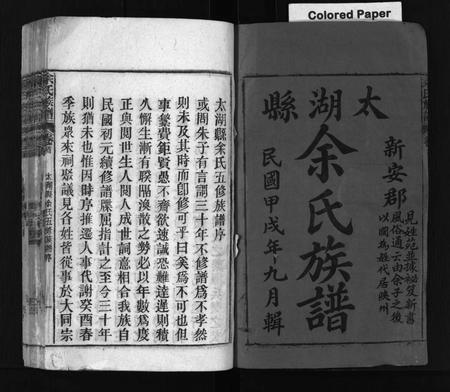 Colored Paper
太湖縣
余氏族譜
民國甲戌年九月輯
新安郡
見姓苑並據祕笈新書
風俗通云由余子之後
以國為姓代居陝州
太湖縣余氏五修族譜序
或聞朱子有言謂三十年不修譜為不孝然
則未及其時而即修可乎曰奚為不可也但
事繁費鉅賢愚不齊欲速誠恐難達遲則積
久懈生漸有睽隔渙散之勢必以年數為度
正與閱世生人閱人成世詞意相合我族自
民國初元續修譜牒屈指計之至今三十年
則猶未也惟因時序推遷人事代謝癸酉春
季族眾來祠聚議見各姓皆從事於大同宗
余氏族譜
太湖縣余氏五修族譜序